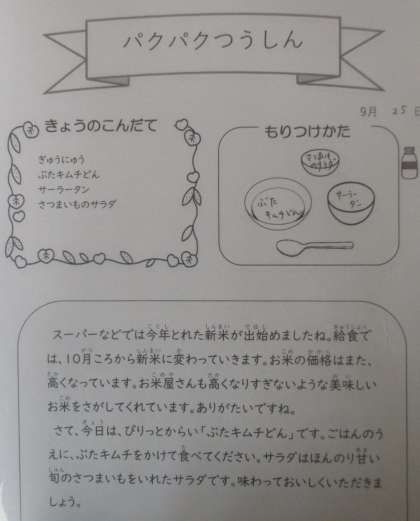 パクパクつうしん
9月 25日
きょうのこんだて
ぎゅうにゅう
ぶたキムチどん
サーラータン
さつまいものサラダ
もりつけかた
さつまいも
のサラダ
ぶた
キムチどん
サーラー
タン
スーパーなどでは今年とれた新米が出始めましたね。給食で
は、10月ころから新米に変わっていきます。お米の価格はまた、
高くなっています。お米屋さんも高くなりすぎないような美味しい
お米をさがしてくれています。ありがたいですね。
さて、今日は、ぴりっとからい「ぶたキムチどん」です。ごはんのう
えに、ぶたキムチをかけて食べてください。サラダはほんのり甘い
旬のさつまいもをいれたサラダです。味わっておいしくいただきま
しょう。